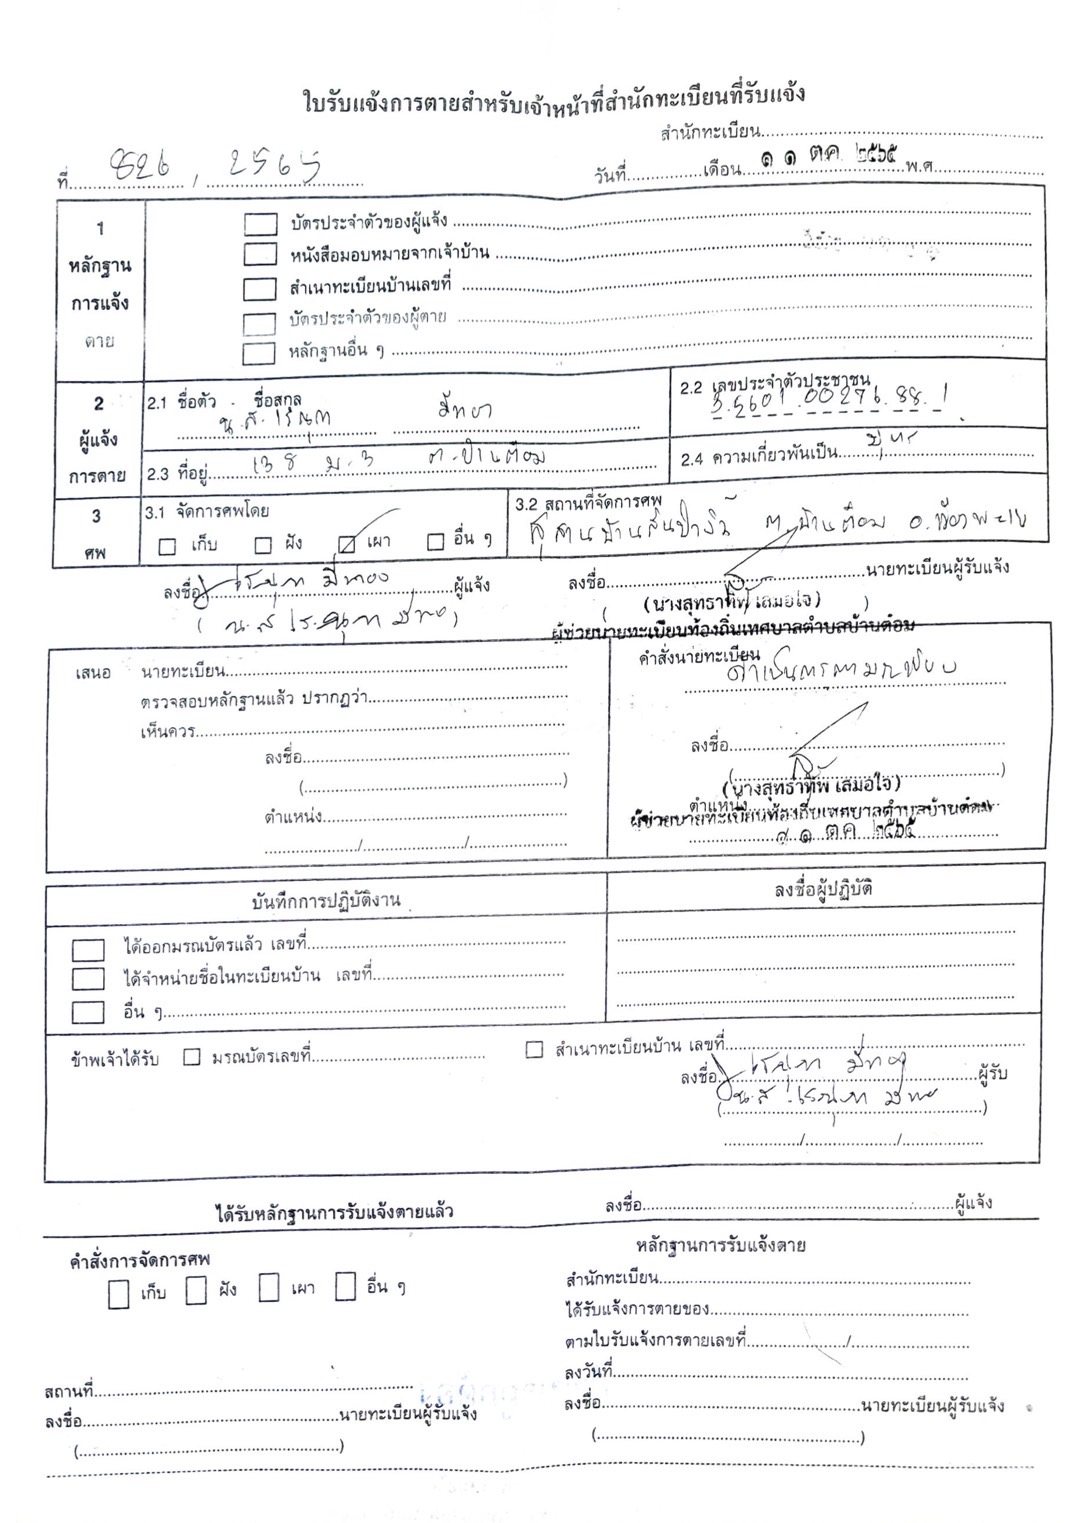 ใบรับแจ้งการตายสำหรับเจ้าหน้าที่สำนักทะเบียนที่รับแจ้ง
สำนักทะเบียน
ที่ 826 , 2565
วันที่ เดือน ๑ ๑ ตค ๒๕๖๕ พ.ศ.
1 หลักฐานการแจ้งตาย
บัตรประจำตัวของผู้แจ้ง
หนังสือมอบหมายจากเจ้าบ้าน
สำเนาทะเบียนบ้านเลขที่
บัตรประจำตัวของผู้ตาย
หลักฐานอื่น ๆ
2 ผู้แจ้งการตาย
2.1 ชื่อตัว ชื่อสกุล
น.ส.
2.2 เลขประจำตัวประชาชน
3 5601 00276 88 1
2.3 ที่อยู่ 138 ม.3 ต.บ้านต๋อม
2.4 ความเกี่ยวพันเป็น
3 ศพ
3.1 จัดการศพโดย
เก็บ ฝัง เผา อื่น ๆ
3.2 สถานที่จัดการศพ
สุสานบ้านสันป่างิ้ว ต.บ้านต๋อม อ.เมืองพะเยา
ลงชื่อ ผู้แจ้ง
ลงชื่อ นายทะเบียนผู้รับแจ้ง
(นางสุทธาทิพ เสมอใจ)
ผู้ช่วยนายทะเบียนท้องถิ่นเทศบาลตำบลบ้านต๋อม
เสนอ นายทะเบียน
ตรวจสอบหลักฐานแล้ว ปรากฏว่า
เห็นควร
ลงชื่อ
( )
ตำแหน่ง
/ /
คำสั่งนายทะเบียน
ลงชื่อ
(นางสุทธาทิพ เสมอใจ)
ตำแหน่ง
ผู้ช่วยนายทะเบียนท้องถิ่นเทศบาลตำบลบ้านต๋อม
๑ ๑ ตค ๒๕๖๕
บันทึกการปฏิบัติงาน
ลงชื่อผู้ปฏิบัติ
ได้ออกมรณบัตรแล้ว เลขที่
ได้จำหน่ายชื่อในทะเบียนบ้าน เลขที่
อื่น ๆ
ข้าพเจ้าได้รับ มรณบัตรเลขที่ สำเนาทะเบียนบ้าน เลขที่
ลงชื่อ ผู้รับ
/ /
ได้รับหลักฐานการรับแจ้งตายแล้ว
ลงชื่อ ผู้แจ้ง
คำสั่งการจัดการศพ
เก็บ ฝัง เผา อื่น ๆ
สถานที่
ลงชื่อ นายทะเบียนผู้รับแจ้ง
( )
หลักฐานการรับแจ้งตาย
สำนักทะเบียน
ได้รับแจ้งการตายของ
ตามใบรับแจ้งการตายเลขที่ /
ลงวันที่
ลงชื่อ นายทะเบียนผู้รับแจ้ง
( )